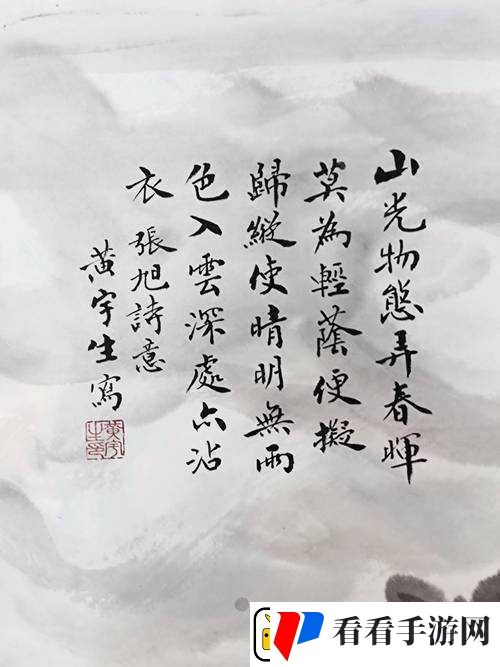 山光物態弄春暉
莫為輕蔭便擬
歸縱使晴明無雨
色入雲深處亦沾
衣 張旭詩意
黃宇生寫
看看手游网